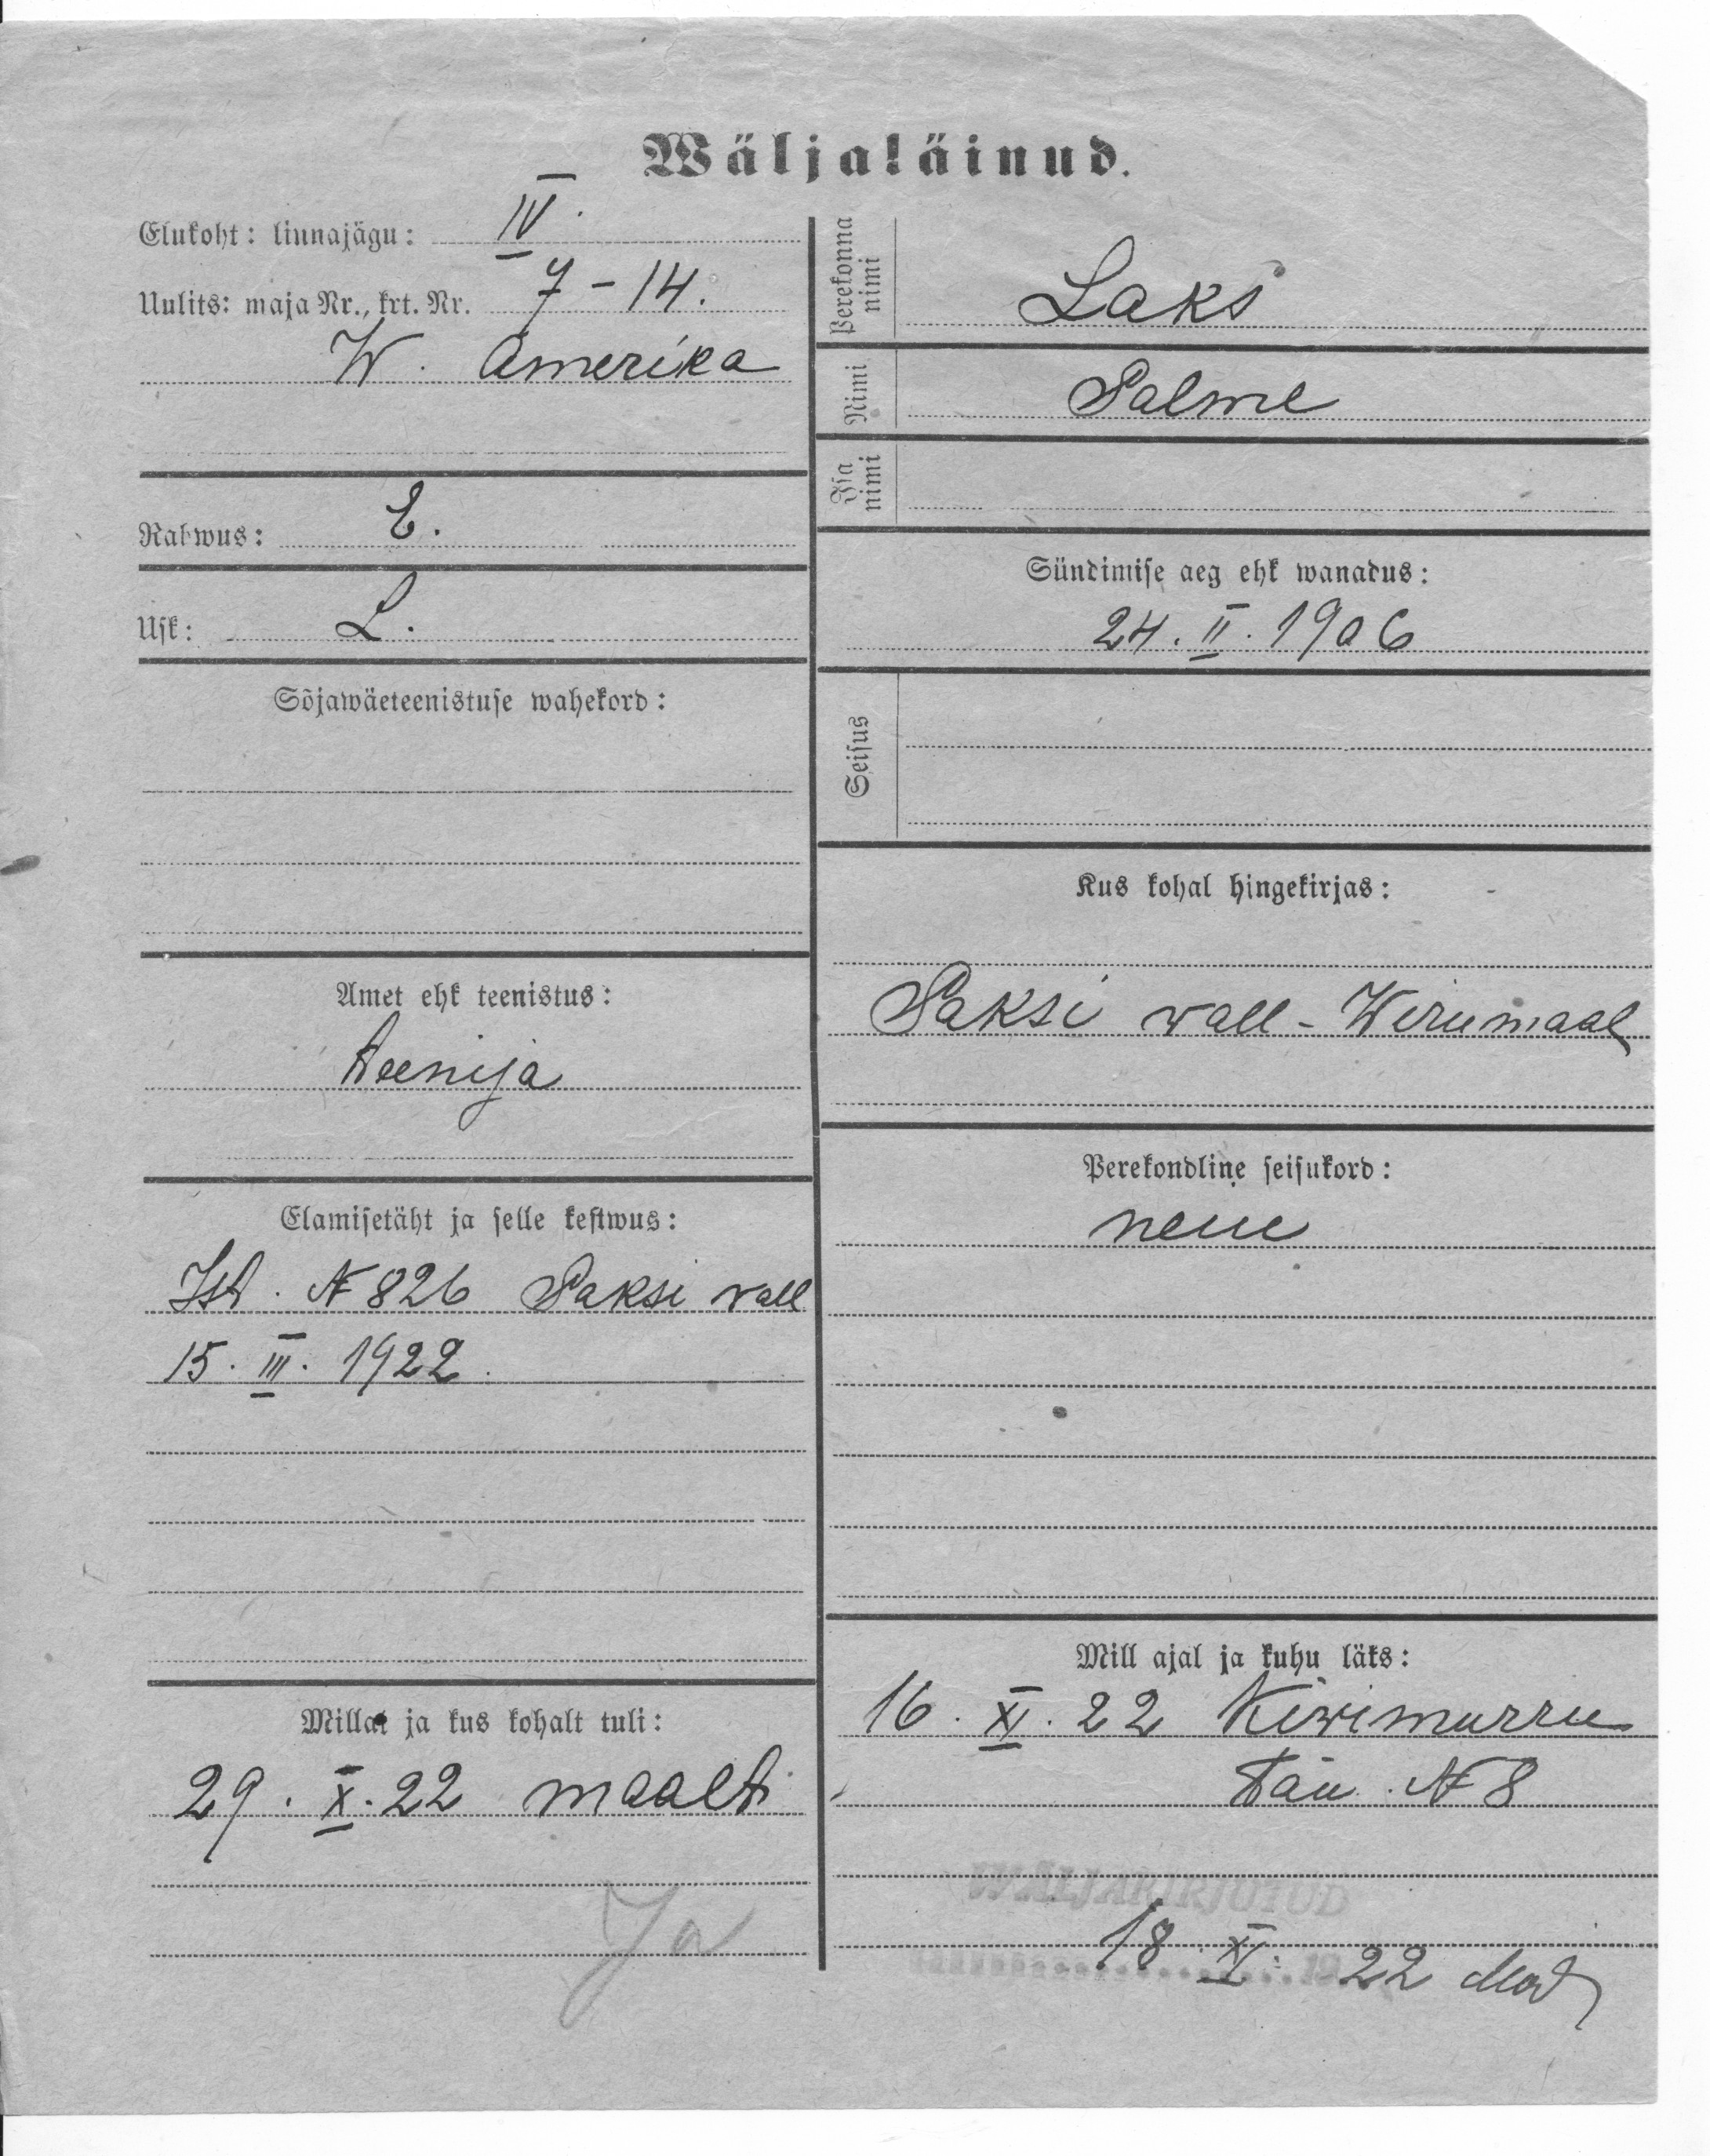 Wäljaläinud.
Elukoht: linnajägu: IV.
Uulits: maja Nr., krt. Nr. 7-14.
W. Amerika
Rahwus: E.
Usk: L.
Sõjawäeteenistuse wahekord:
Amet ehk teenistus:
teenija
Elamisetäht ja selle kestwus:
Ist. № 826 Saksi vall
15. III. 1922.
Millal ja kus kohalt tuli:
29. X. 22 maalt
Ja
Perekonna nimi Laks
Nimi Salme
Isa nimi
Sündimise aeg ehk wanadus:
24. II. 1906
Seisus
Kus kohal hingekirjas:
Saksi vall - Wirumaal
Perekondline seisukord:
Mill ajal ja kuhu läks:
16. XI. 22 Kiwimurru
tän. № 8
WÄLJAKIRJUTUD
18. XI. 22